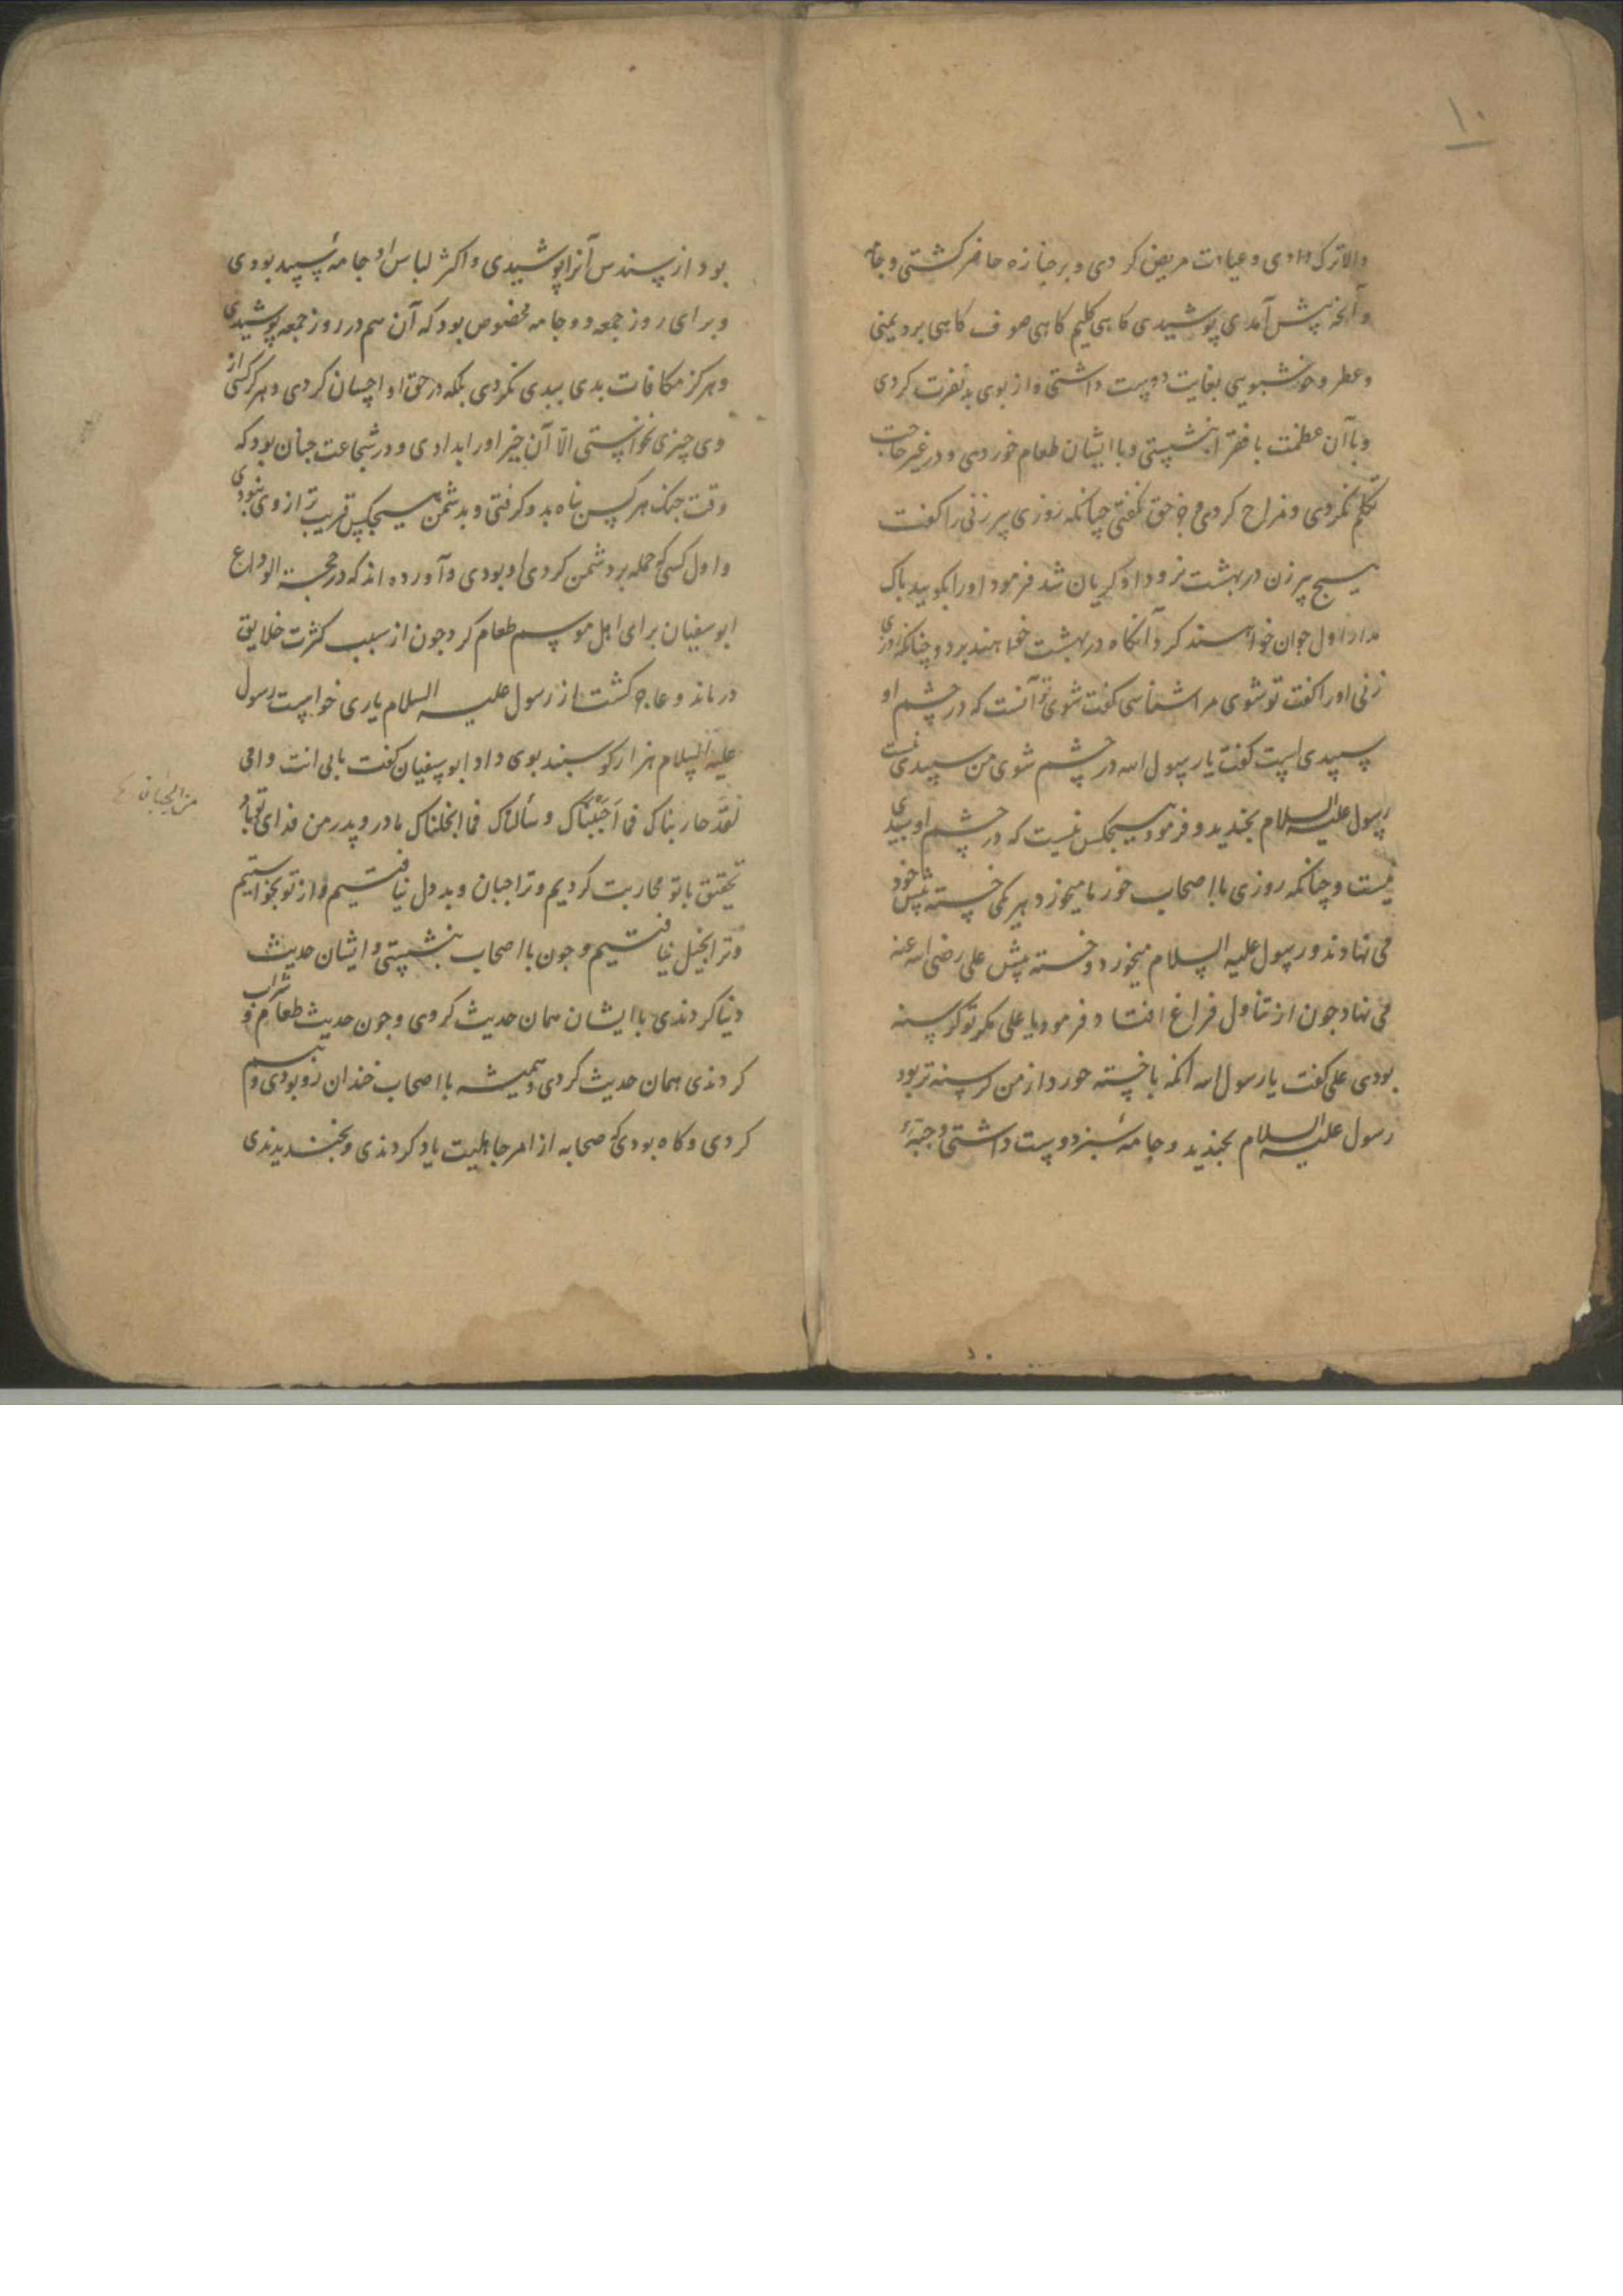 ۱۰
والا ترک دادی و عیادت مریض کردی و بر جنازه حاضر کشتی و جامه
و آنچه پیش آمدی پوشیدی کاهی کلیم کاهی صوف کاهی برد یمنی
و عطر و خوشبویی بغایت دوست داشتی و از بوی بد نفرت کردی
و با آن عظمت با فقرا بنشستی و با ایشان طعام خوردی و در غیر حاجت
تکلم نکردی و مزاح کردی و جز حق نکفتی چنانکه روزی پیر زنی را کفت
هیچ پیر زن در بهشت نرود او کریان شد فرمود او را بکویید باک
مدار اول جوان خواهند کرد آنکاه در بهشت خواهند برد و چنانکه روزی
زنی او را کفت تو شوی مرا شناسی کفت شوی تو آنست که در چشم او
سپیدی است کفت یا رسول الله در چشم شوی من سپیدی نیست
رسول علیه السلام بخندید و فرمود هیچکس نیست که در چشم او سپیدی
نیست و چنانکه روزی با اصحاب خرما میخورد هر یکی خسته پیش خود
می نهادند و رسول علیه السلام میخورد و خسته پیش علی رضی الله عنه
می نهاد چون از تناول فراغ افتاد فرمود یا علی مکر تو کرسنه
بودی علی کفت یا رسول الله آنکه با خسته خورد از من کرسنه تر بود
رسول علیه السلام بخندید و جامهٔ سبز دوست داشتی و جبّهٔ
بود از سندس آنرا پوشیدی و اکثر لباس او جامهٔ سپید بودی
و برای روز جمعه دو جامه مخصوص بود که آن هم در روز جمعه پوشیدی
و هرکز مکافات بدی ببدی نکردی بلکه در حق او احسان کردی و هرکز کسی از
وی چیزی نخواستی الّا آن چیز او را بدادی و در شجاعت چنان بود که
وقت جنک هر کس پناه بدو کرفتی و بدشمن هیچکس قریب تر از وی نبودی
و اول کسی که حمله بر دشمن کردی او بودی و آورده اند که در حجة الوداع
ابو سفیان برای اهل موسم طعام کرد چون از سبب کثرت خلایق
درماند و عاجز کشت از رسول علیه السلام یاری خواست رسول
علیه السلام هزار کوسبند بوی داد ابو سفیان کفت بابی انت و امی
لقد حاربناک فما اَجبَنّاک و سألناک فما ابخلناک مادر و پدر من فدای تو باد
تحقیق با تو محاربت کردیم و ترا جبان و بددل نیافتیم و از تو بخواستیم
و ترا بخیل نیافتیم و چون با اصحاب بنشستی و ایشان حدیث
دنیا کردندی با ایشان همان حدیث کردی و چون حدیث طعام و شراب
کردندی همان حدیث کردی و همیشه با اصحاب خندان رو بودی و تبسم
کردی و کاه بودی که صحابه از امر جاهلیت یاد کردندی و بخندیدندی
من الجبان
۱۰